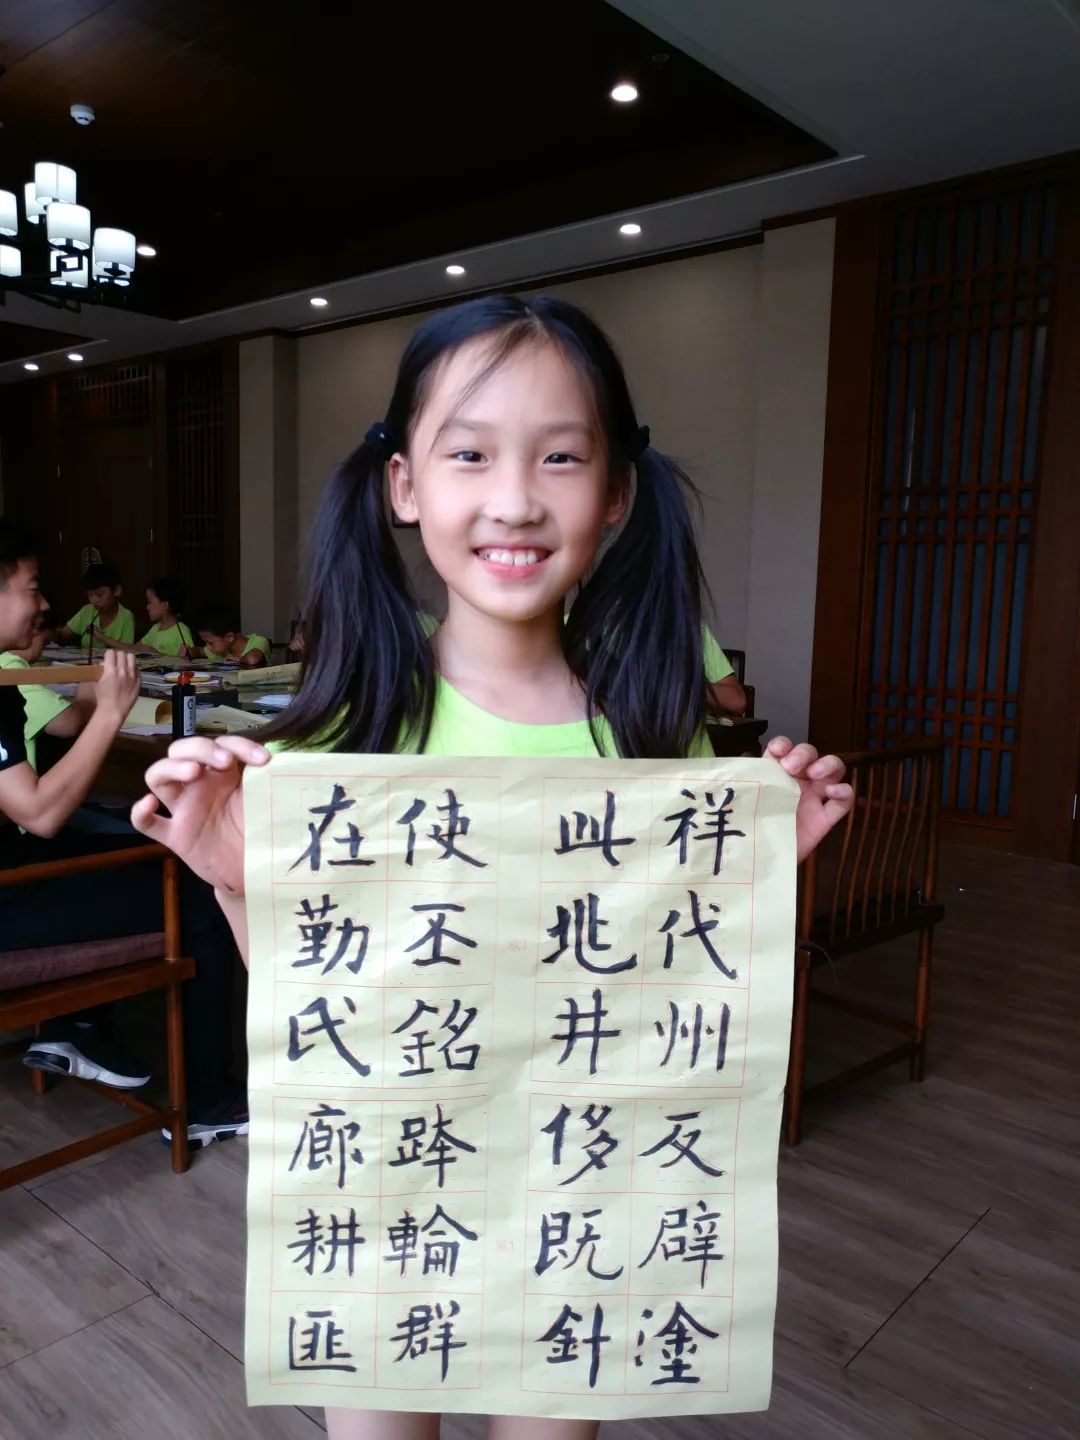 祥代州反辟塗
此井侈既針
使丕銘輪群
在勤氏廊耕匪